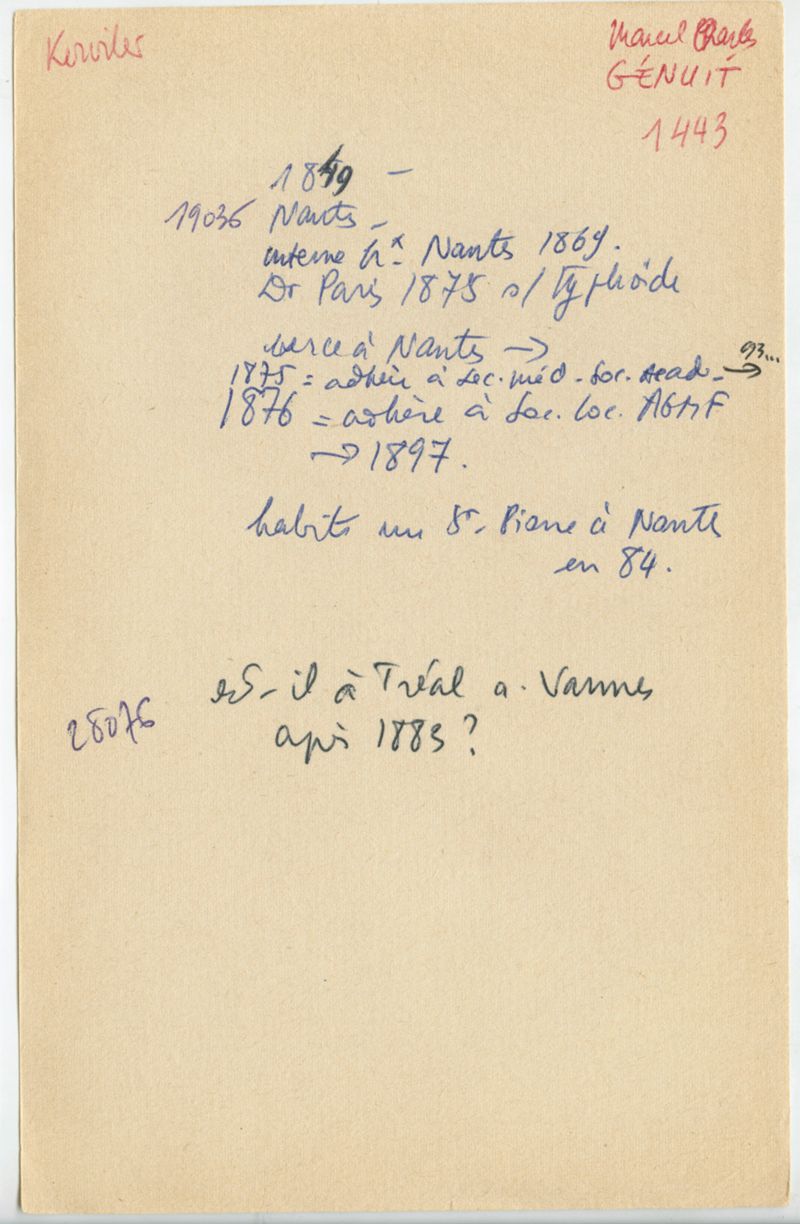 Kerviler
Marcel Charles
GÉNUIT
1443
1849 -
19036 Nantes -
interne hx Nantes 1869.
Dr Paris 1875 s/ Typhoïde
exerce à Nantes →
1875 = adhère à Sec. méd - Soc. Acad - → 93...
1876 = adhère à Soc. loc. AGMF
→ 1897.
habite St - Pierre à Nantes
en 84.
est-il à Tréal a. Vannes
28076
après 1883 ?